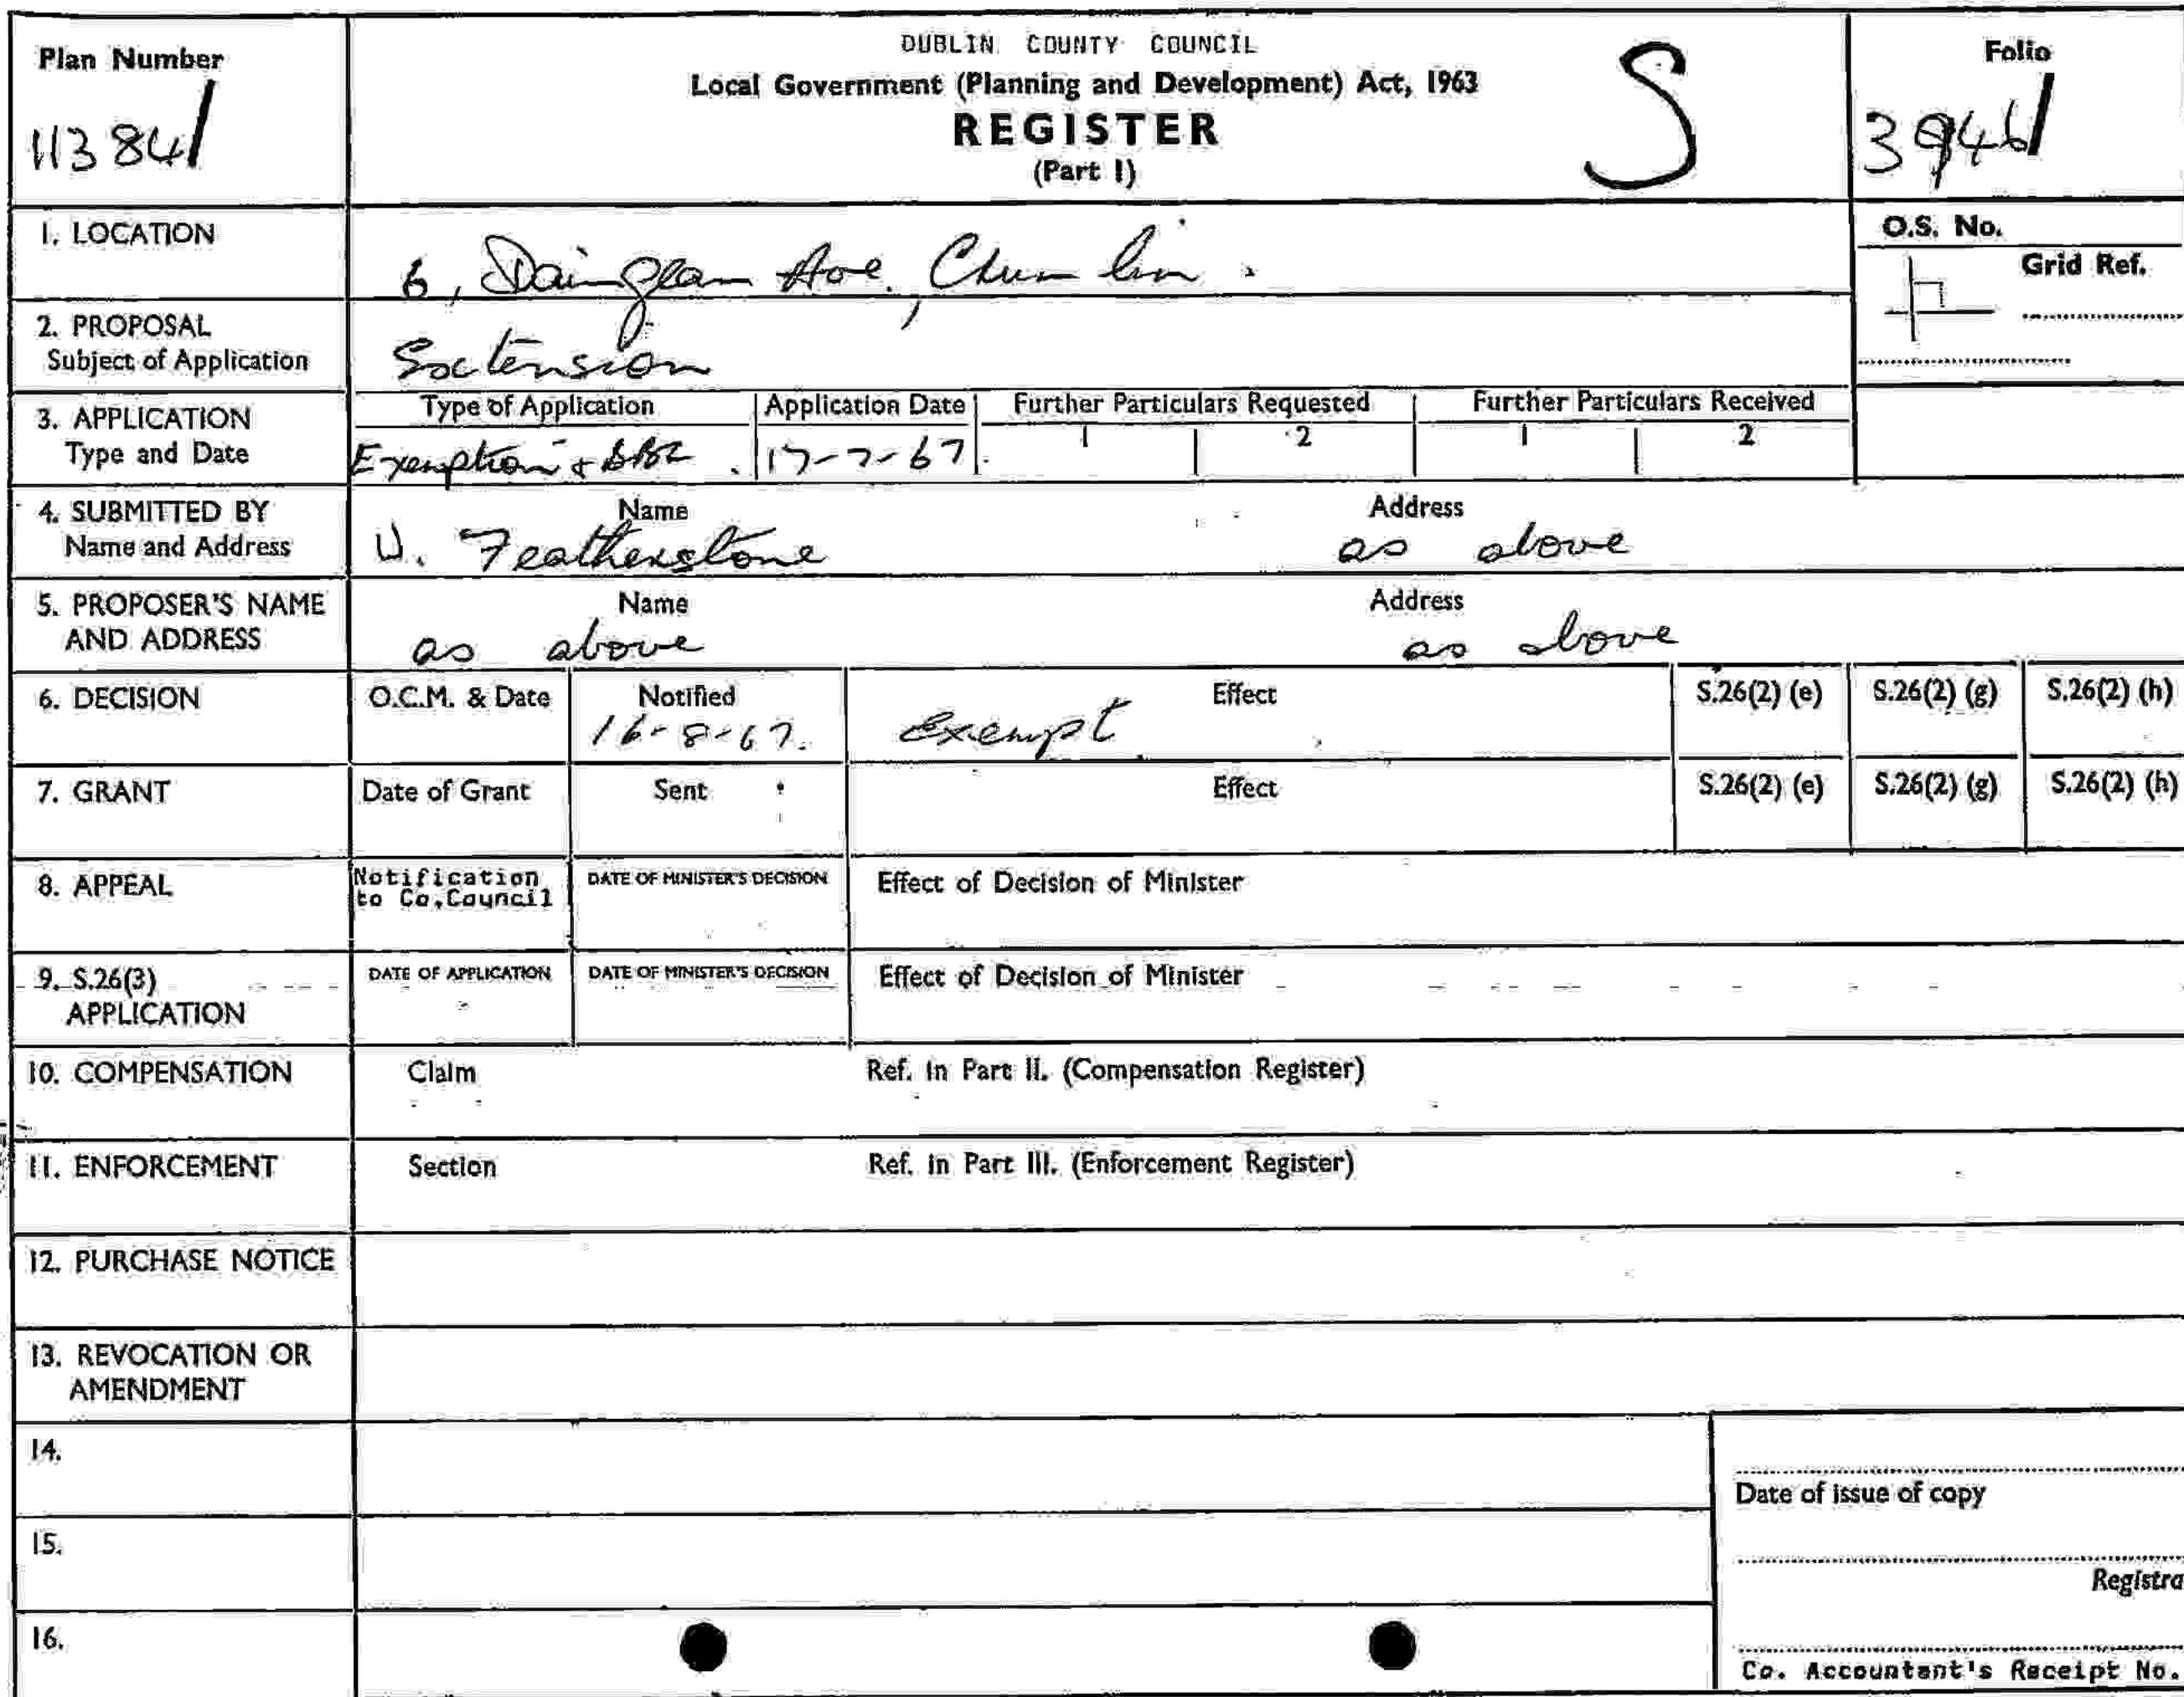 DUBLIN COUNTY COUNCIL
Local Government (Planning and Development) Act, 1963
REGISTER
(Part I)
S
Plan Number
11384/
Folio
3946/
1. LOCATION
6, Daingean Ave., Crumlin.
O.S. No.
Grid Ref.
2. PROPOSAL
Subject of Application
Extension
3. APPLICATION
Type and Date
Type of Application Application Date Further Particulars Requested Further Particulars Received
1 2 1 2
Exemption + 17-7-67.
4. SUBMITTED BY
Name and Address
Name Address
Featherstone as above
5. PROPOSER'S NAME
AND ADDRESS
Name Address
as above as above
6. DECISION O.C.M. & Date Notified Effect S.26(2) (e) S.26(2) (g) S.26(2) (h)
16-8-67. Exempt
7. GRANT Date of Grant Sent Effect S.26(2) (e) S.26(2) (g) S.26(2) (h)
8. APPEAL
Notification
to Co.Council
DATE OF MINISTER'S DECISION Effect of Decision of Minister
9. S.26(3)
APPLICATION
DATE OF APPLICATION DATE OF MINISTER'S DECISION Effect of Decision of Minister
10. COMPENSATION Claim Ref. in Part II. (Compensation Register)
11. ENFORCEMENT Section Ref. in Part III. (Enforcement Register)
12. PURCHASE NOTICE
13. REVOCATION OR
AMENDMENT
14.
Date of issue of copy
15.
Registra
16.
Co. Accountant's Receipt No.